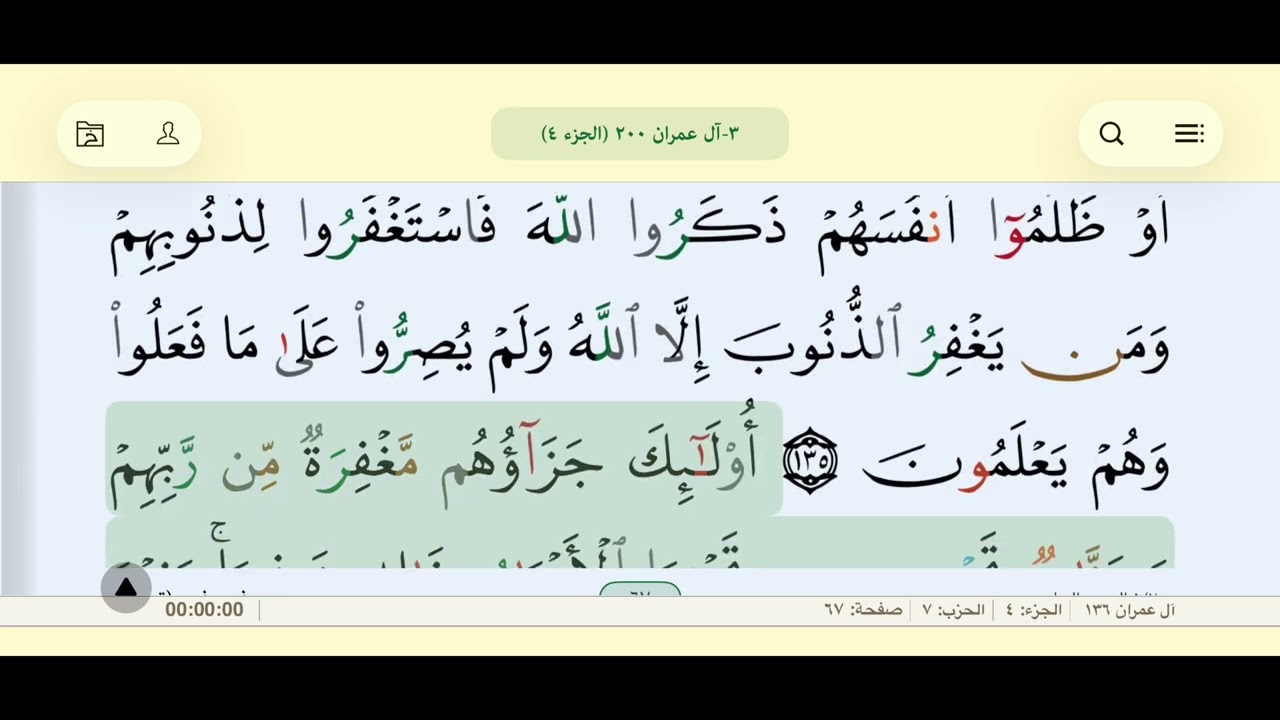 ٣-آل عمران ٢٠٠ (الجزء ٤)
أَوْ ظَلَمُوٓا۟ أَنفُسَهُمْ ذَكَرُوا۟ ٱللَّهَ فَٱسْتَغْفَرُوا۟ لِذُنُوبِهِمْ
وَمَن يَغْفِرُ ٱلذُّنُوبَ إِلَّا ٱللَّهُ وَلَمْ يُصِرُّوا۟ عَلَىٰ مَا فَعَلُوا۟
وَهُمْ يَعْلَمُونَ ١٣٥ أُو۟لَـٰٓئِكَ جَزَآؤُهُم مَّغْفِرَةٌ مِّن رَّبِّهِمْ
آل عمران ١٣٦ | الجزء: ٤ | الحزب: ٧ | صفحة: ٦٧
00:00:00